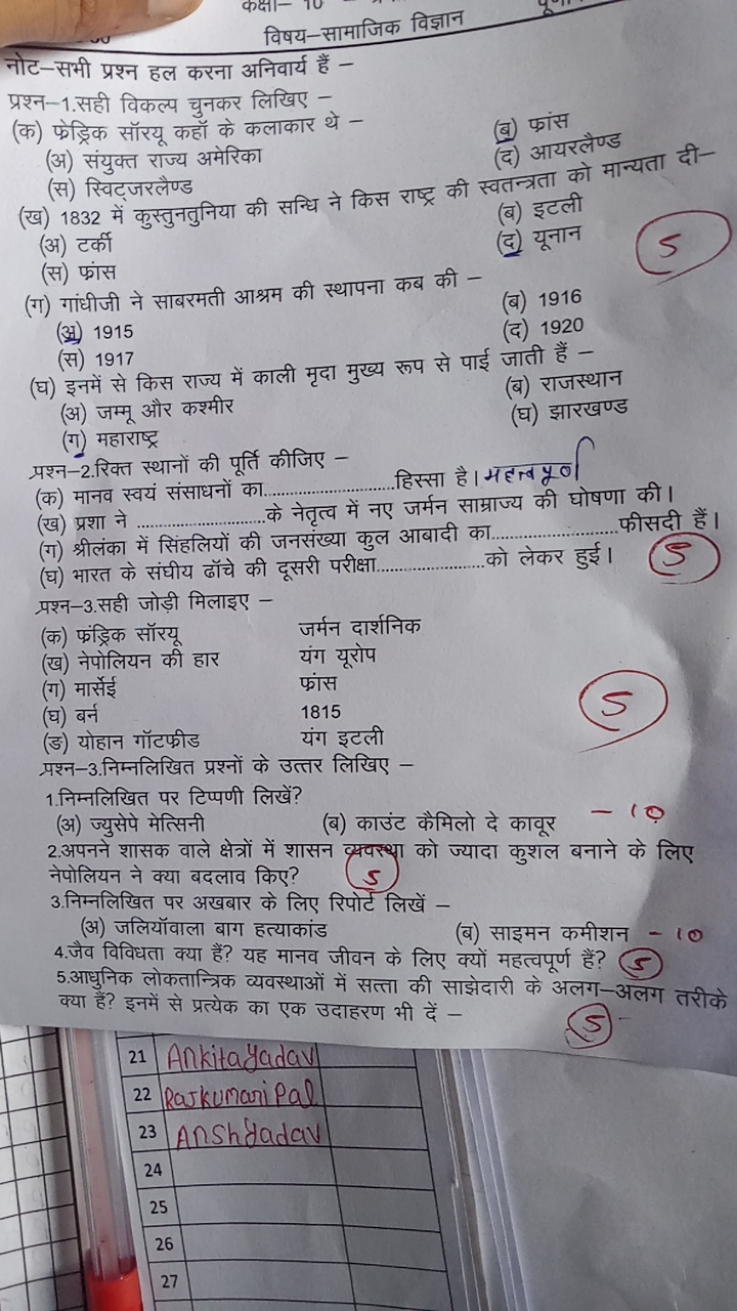 कक्षा— 10
विषय—सामाजिक विज्ञान
नोट—सभी प्रश्न हल करना अनिवार्य हैं –
प्रश्न–1.सही विकल्प चुनकर लिखिए –
(क) फ्रेड्रिक सॉरयू कहॉ के कलाकार थे –
(अ) संयुक्त राज्य अमेरिका (ब) फ्रांस
(स) स्विट्जरलैण्ड (द) आयरलैण्ड
(ख) 1832 में कुस्तुनतुनिया की सन्धि ने किस राष्ट्र की स्वतन्त्रता को मान्यता दी–
(अ) टर्की (ब) इटली
(स) फ्रांस (द) यूनान 5
(ग) गांधीजी ने साबरमती आश्रम की स्थापना कब की –
(अ) 1915 (ब) 1916
(स) 1917 (द) 1920
(घ) इनमें से किस राज्य में काली मृदा मुख्य रूप से पाई जाती हैं –
(अ) जम्मू और कश्मीर (ब) राजस्थान
(ग) महाराष्ट्र (घ) झारखण्ड
प्रश्न–2.रिक्त स्थानों की पूर्ति कीजिए –
(क) मानव स्वयं संसाधनों का..........................हिस्सा है। महत्वपूर्ण
(ख) प्रशा ने .........................के नेतृत्व में नए जर्मन साम्राज्य की घोषणा की।
(ग) श्रीलंका में सिंहलियों की जनसंख्या कुल आबादी का........................फीसदी हैं।
(घ) भारत के संघीय ढॉचे की दूसरी परीक्षा.....................को लेकर हुई। 5
प्रश्न–3.सही जोड़ी मिलाइए –
(क) फ्रंड्रिक सॉरयू जर्मन दार्शनिक
(ख) नेपोलियन की हार यंग यूरोप
(ग) मार्सेई फ्रांस
(घ) बर्न 1815 5
(ड) योहान गॉटफ्रीड यंग इटली
प्रश्न–3.निम्नलिखित प्रश्नों के उत्तर लिखिए –
1.निम्नलिखित पर टिप्पणी लिखें?
(अ) ज्युसेपे मेत्सिनी (ब) काउंट कैमिलो दे कावूर – 10
2.अपनने शासक वाले क्षेत्रों में शासन व्यवस्था को ज्यादा कुशल बनाने के लिए
नेपोलियन ने क्या बदलाव किए? 5
3.निम्नलिखित पर अखबार के लिए रिपोर्ट लिखें –
(अ) जलियॉवाला बाग हत्याकांड (ब) साइमन कमीशन – 10
4.जैव विविधता क्या हैं? यह मानव जीवन के लिए क्यों महत्वपूर्ण हैं? 5
5.आधुनिक लोकतान्त्रिक व्यवस्थाओं में सत्ता की साझेदारी के अलग–अलग तरीके
क्या हैं? इनमें से प्रत्येक का एक उदाहरण भी दें – 5
21 Ankita Yadav
22 Rajkumari Pal
23 Ansh Yadav
24
25
26
27